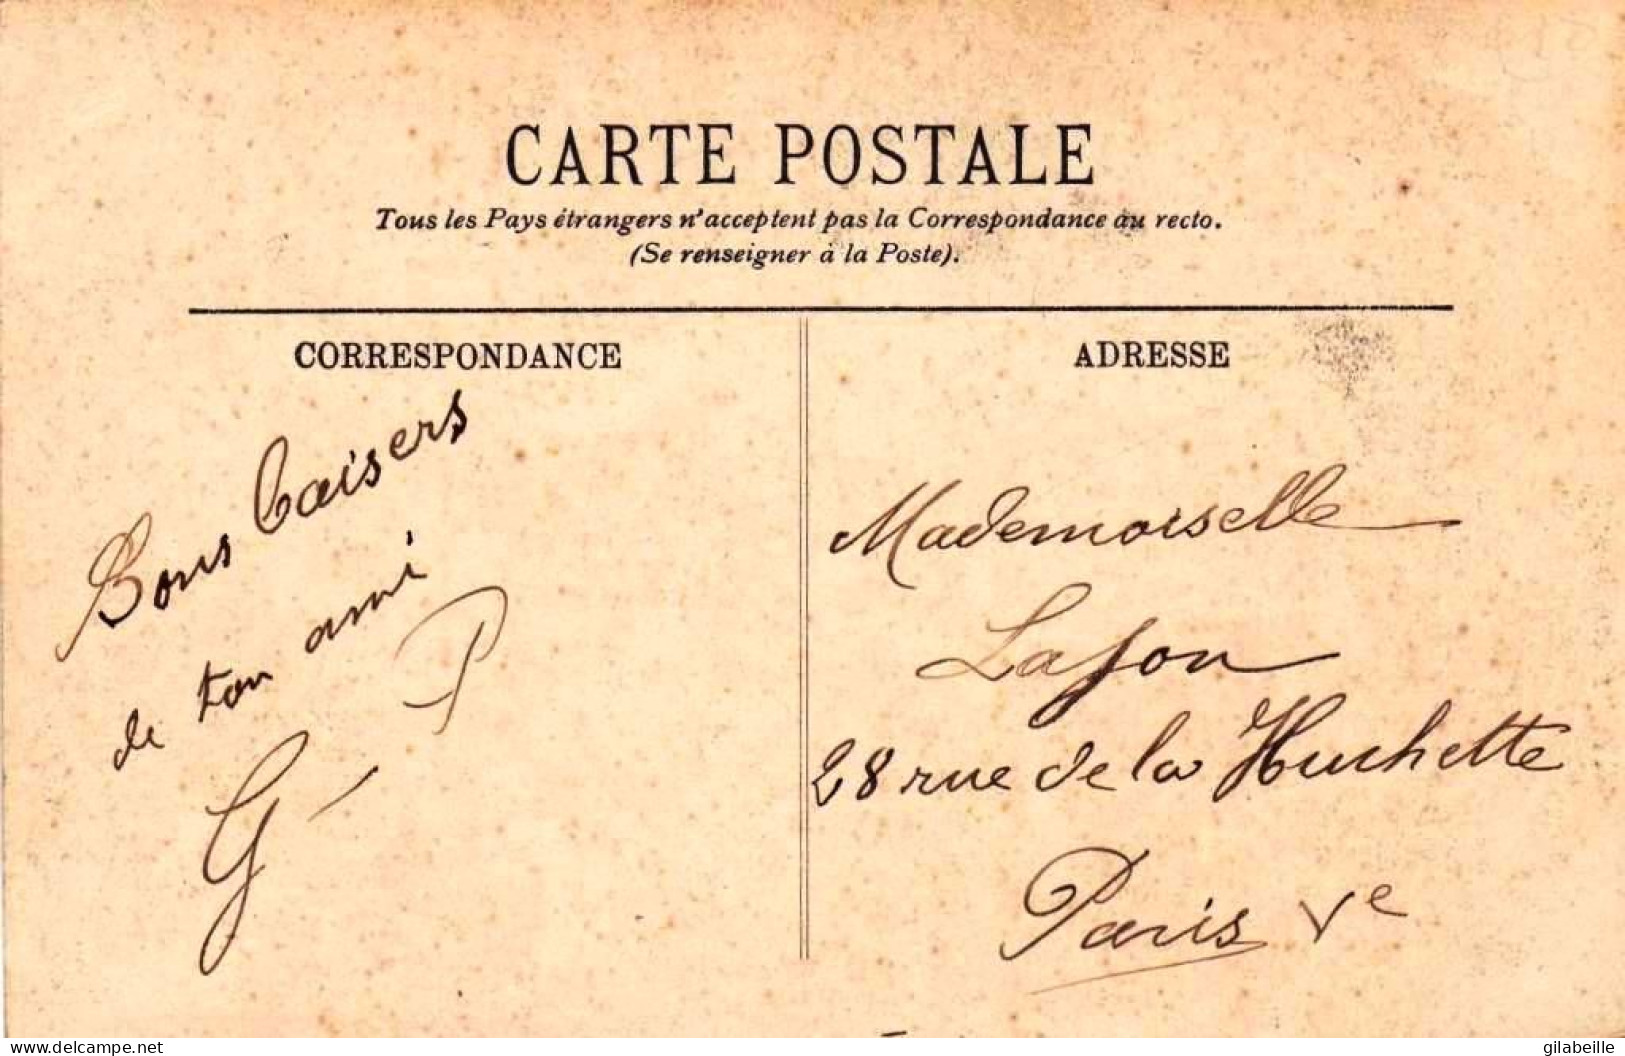 CARTE POSTALE
Tous les Pays étrangers n'acceptent pas la Correspondance au recto.
(Se renseigner à la Poste).
CORRESPONDANCE
Bons baisers
de ton ami
G - P
ADRESSE
Mademoiselle
Lafon
28 rue de la Huchette
Paris Ve
delcampe.net
gilabeille